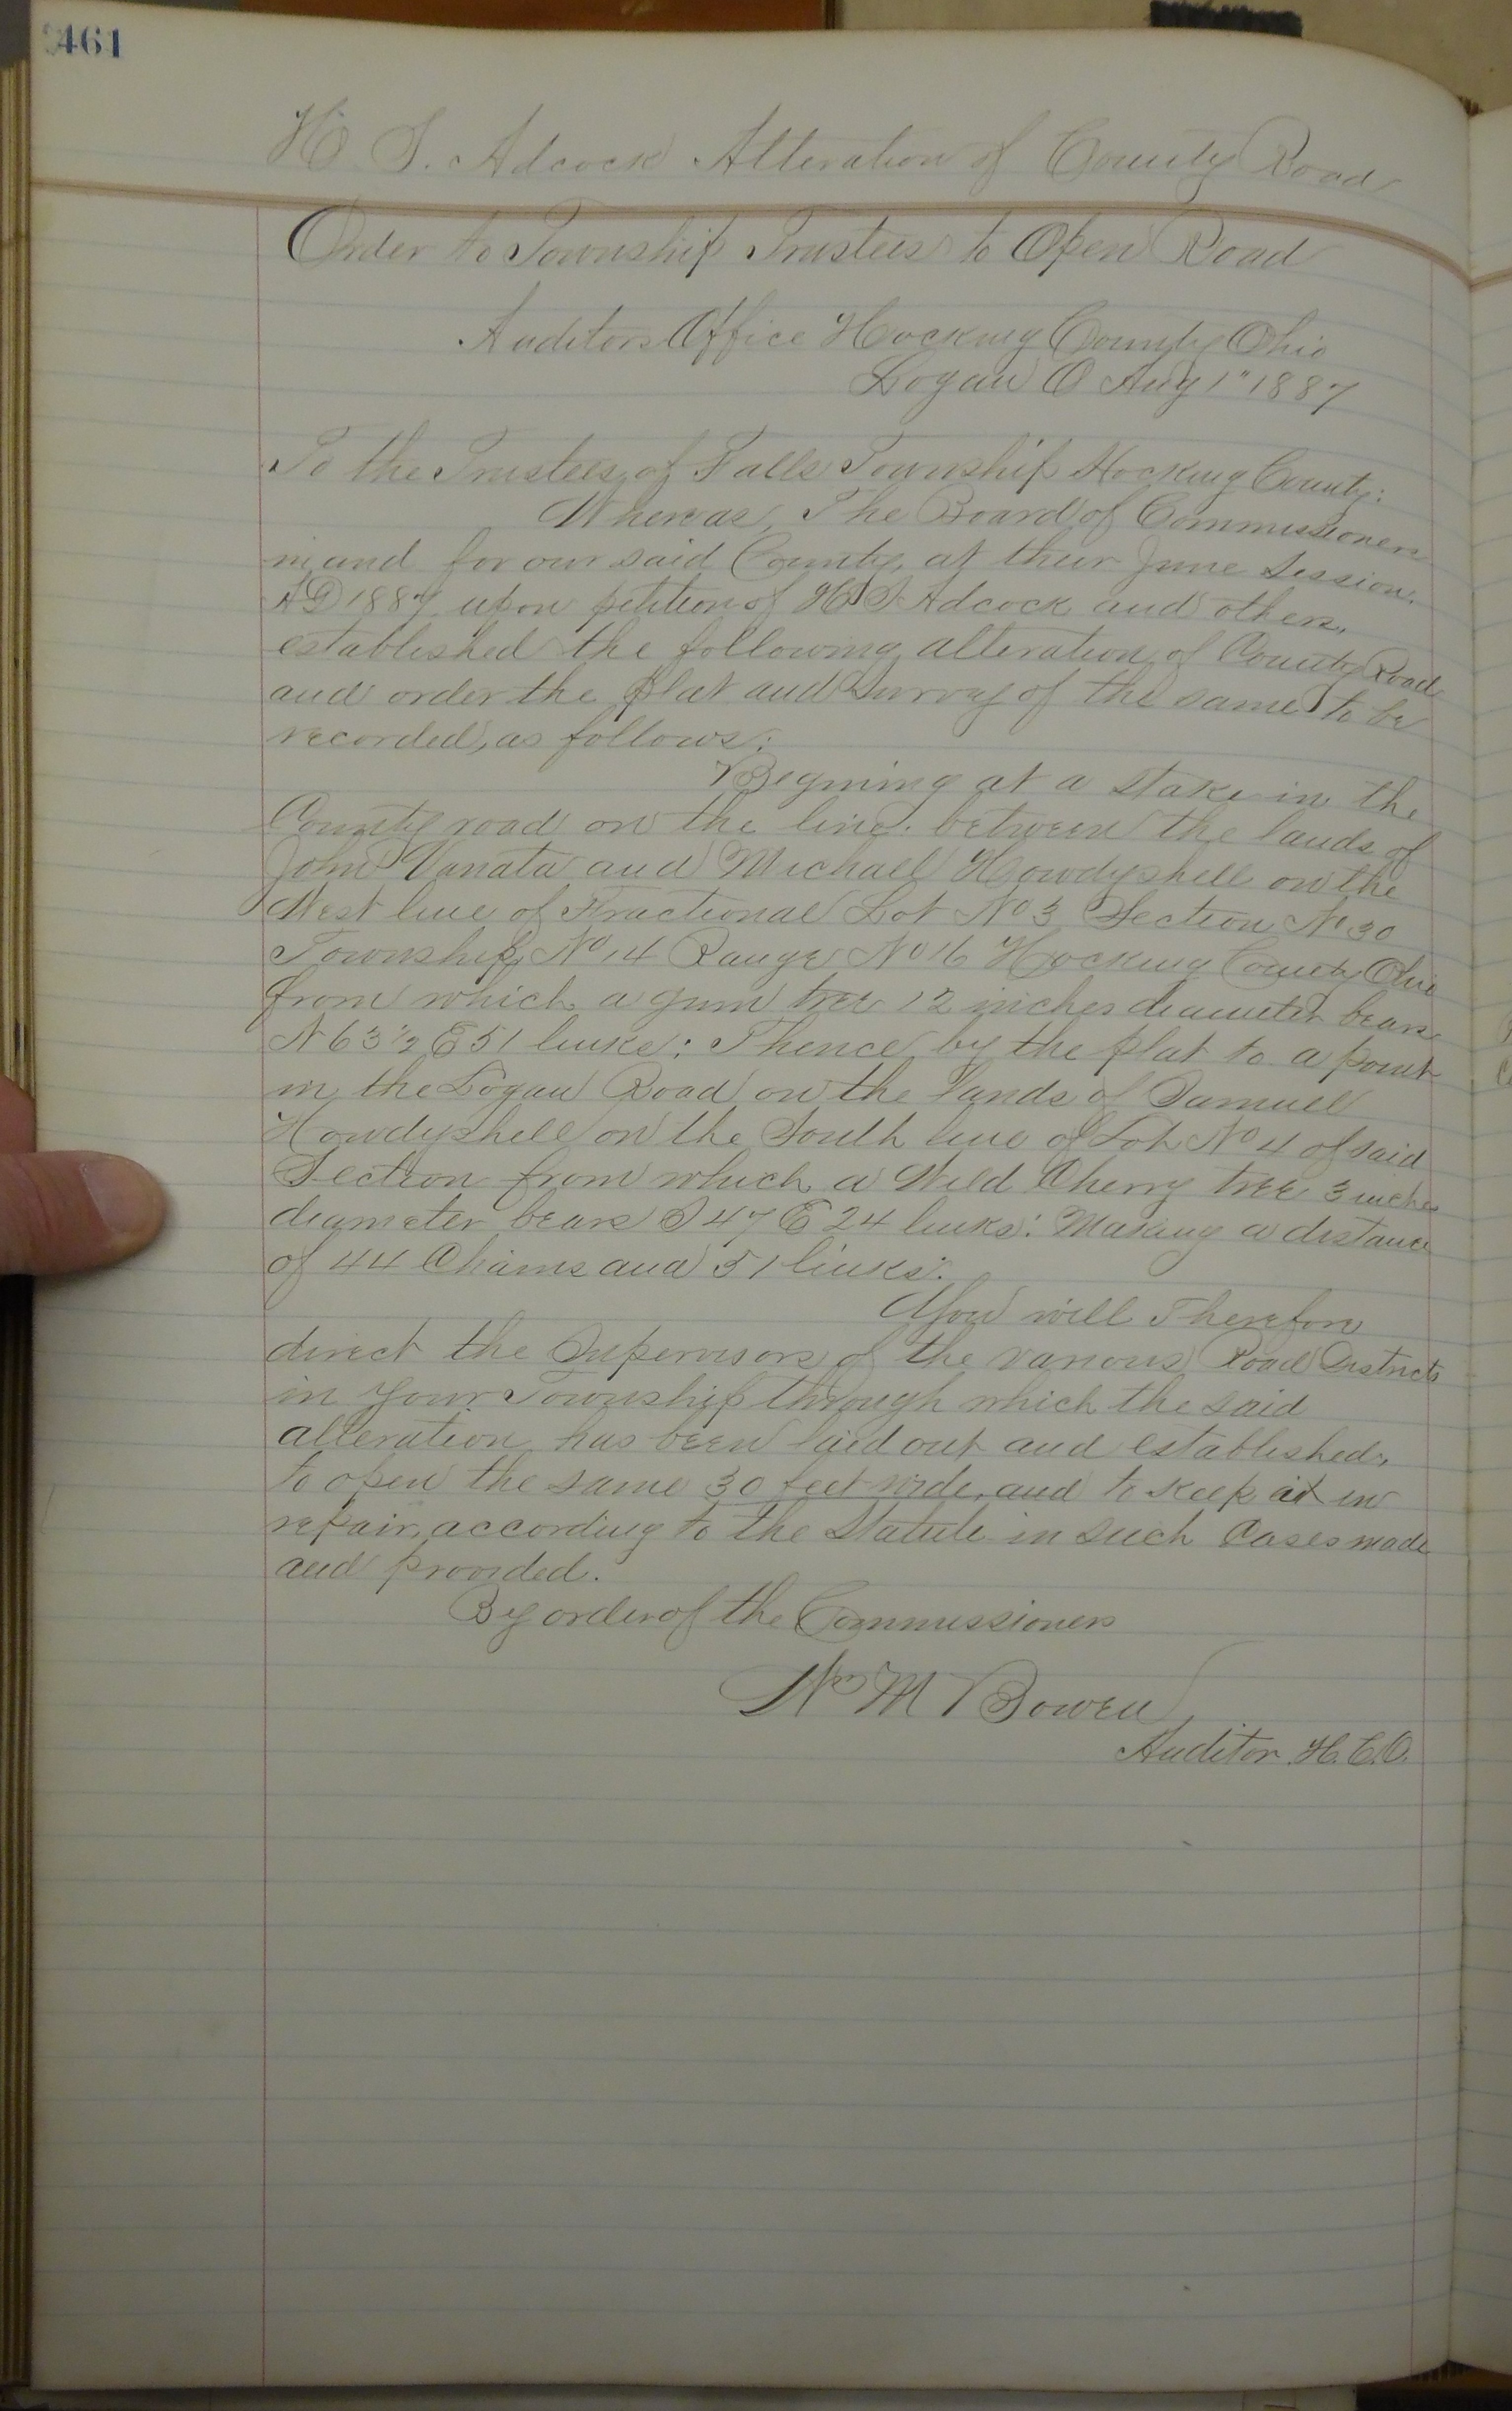 461
H. S. Adcock Alteration of County Road
Order to Township Trustees to Open Road
Auditors Office Hocking County Ohio
Logan O Aug 1" 1887
To the Trustees of Falls Township Hocking County:
Whereas, The Board of Commissioners
in and for our said County, at their June Session.
AD 1887 upon petition of H. S. Adcock and others,
established the following alteration of County Road
and order the plat and Survey of the same to be
recorded, as follows:
Begining at a stake in the
County road on the line between the lands of
John Vanata and Michael Howdyshell on the
West line of Fractional Lot No 3 Section No 30
Township No 14 Range No 16 Hocking County Ohio
from which a gum tree 12 inches diameter bears
N 63 1/2 E 51 links: Thence by the plat to a point
in the Logan Road on the lands of Samuel
Howdyshell on the South line of Lot No 4 of said
Section from which a Wild Cherry tree 3 inches
diameter bears S 47 E 24 links: Making a distance
of 44 Chains and 51 links.
You will Therefore
direct the Supervisors of the various Road Districts
in your Township through which the said
alteration has been laid out and established,
to open the same 30 feet wide, and to keep it in
repair, according to the Statute in such Cases made
and provided.
By order of the Commissioners
Wm M Bowen
Auditor H.C.O.